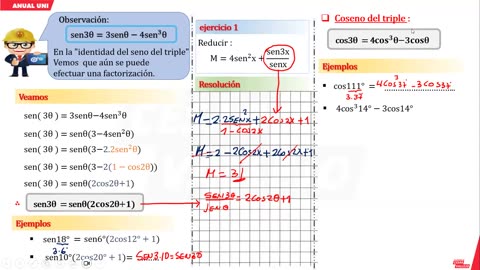 ANUAL UNI
Observación:
sen3θ = 3senθ − 4sen³θ
En la "identidad del seno del triple"
Vemos que aún se puede
efectuar una factorización.
Veamos
sen( 3θ ) = 3senθ−4sen³θ
sen( 3θ ) = senθ(3−4sen²θ)
sen( 3θ ) = senθ(3−2.2sen²θ)
sen( 3θ ) = senθ(3−2(1 − cos2θ))
sen( 3θ ) = senθ(2cos2θ+1)
∴ sen3θ = senθ(2cos2θ+1)
Ejemplos
sen18° = sen6°(2cos12° + 1)
3.6°
sen10°(2cos20° + 1)= SEN3.10=SEN30
ejercicio 1
Reducir :
M = 4sen²x + sen3x/senx
Resolución
M=2.2SENx²+2COS2x+1
1-COS2x
M=2-2COS2x+2COS2x+1
M=3
SEN3θ/SENθ=2COS2θ+1
Coseno del triple :
cos3θ = 4cos³θ−3cosθ
Ejemplos
cos111° = 4COS³37-3COS37
3.37
4cos³14° − 3cos14°